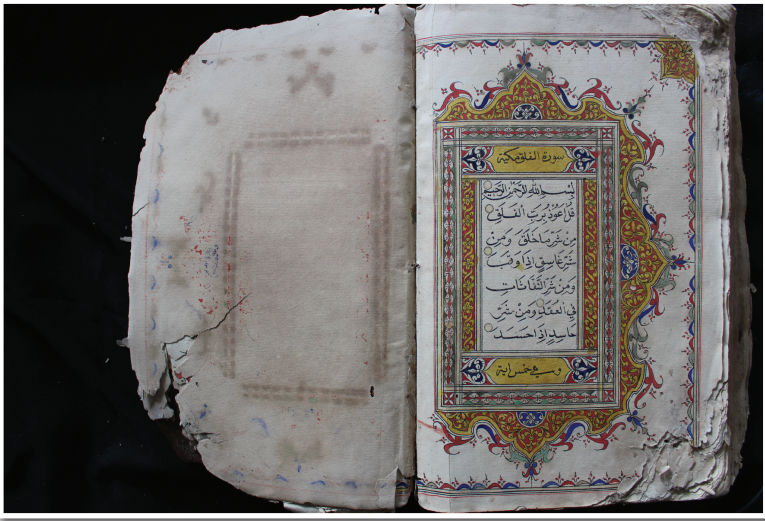 سورة الفلق مكية
بِسْمِ اللهِ الرَّحْمٰنِ الرَّحِيْمِ
قُلْ اَعُوْذُ بِرَبِّ الْفَلَقِ
مِنْ شَرِّ مَا خَلَقَ وَمِنْ
شَرِّ غَاسِقٍ اِذَا وَقَبَ
وَمِنْ شَرِّ النَّفَّاثَاتِ
فِي الْعُقَدِ وَمِنْ شَرِّ
حَاسِدٍ اِذَا حَسَدَ
وهي خمس اية